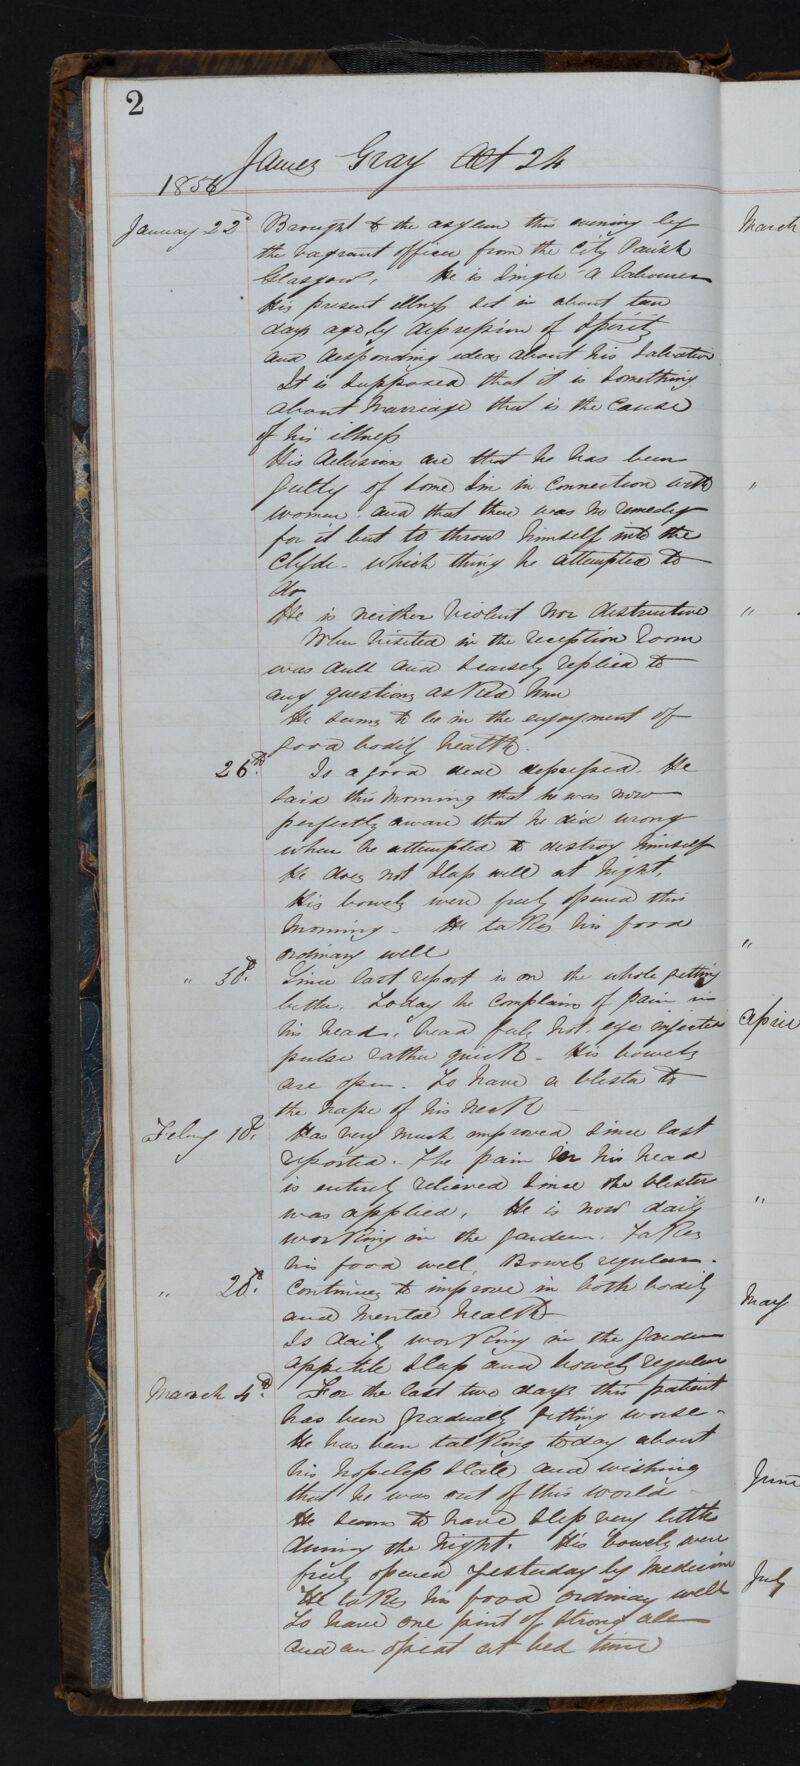 2
James Gray Aet 24
1856
January 22d Brought to the asylum this evening by
the vagrant officer from the City Parish
Glasgow. He is Single - A labourer
His present illness set in about ten
days ago, by depression of Spirits
and desponding ideas about his Salvation
It is supposed that it is something
about Marriage that is the cause
of his illness
His delusions are that he has been
guilty of some Sin in connection with
women. and that there was no remedy
for it but to throw himself into the
Clyde - which thing he attempted to
do
He is neither violent nor destructive
When visited in the reception room
was dull and scarcely replied to
any questions asked him
He seems to be in the enjoyment of
good bodily health.
26th. Is a good deal depressed. He
said this morning that he was now
perfectly aware that he did wrong
when he attempted to destroy himself
He does not sleep well at night.
His bowels were freely opened this
morning - He takes his food
ordinary well
" 30th. Since last report is on the whole getting
better. Today he complains of pain in
his head, head feels hot, eyes injected
pulse rather quick - His bowels
are open. To have a blister to
the nape of his neck
Febuy 10th. Has very much improved since last
reported - The pain in his head
is entirely relieved since the blister
was applied. He is now daily
working in the garden. Takes
his food well, Bowels regular -
" 20th. Continues to improve in both bodily
and mental health
Is daily working in the garden
appetite sleep and bowels regular
March 4th. For the last two days this patient
has been gradually getting worse -
He has been talking today about
his hopeless state and wishing
that he was out of this world -
He seems to have slep very little
during the night. His bowels were
freely opened yesterday by medicine
He takes his food ordinary well
To have one pint of strong ale
and an opiat at bed time
March
"
"
"
April
"
May
June
July